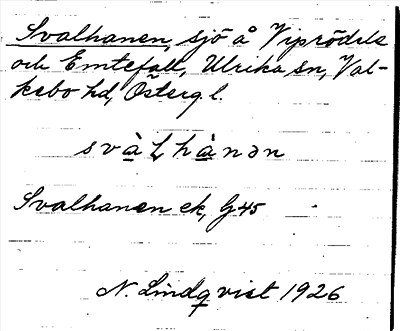 Svalhanen, sjö å Viprödels
och Emtefall, Ulrika sn, Val-
kebo hd, Österg. l.
svàl̨hànən
Svalhanen ek, G45
N. Lindqvist 1926